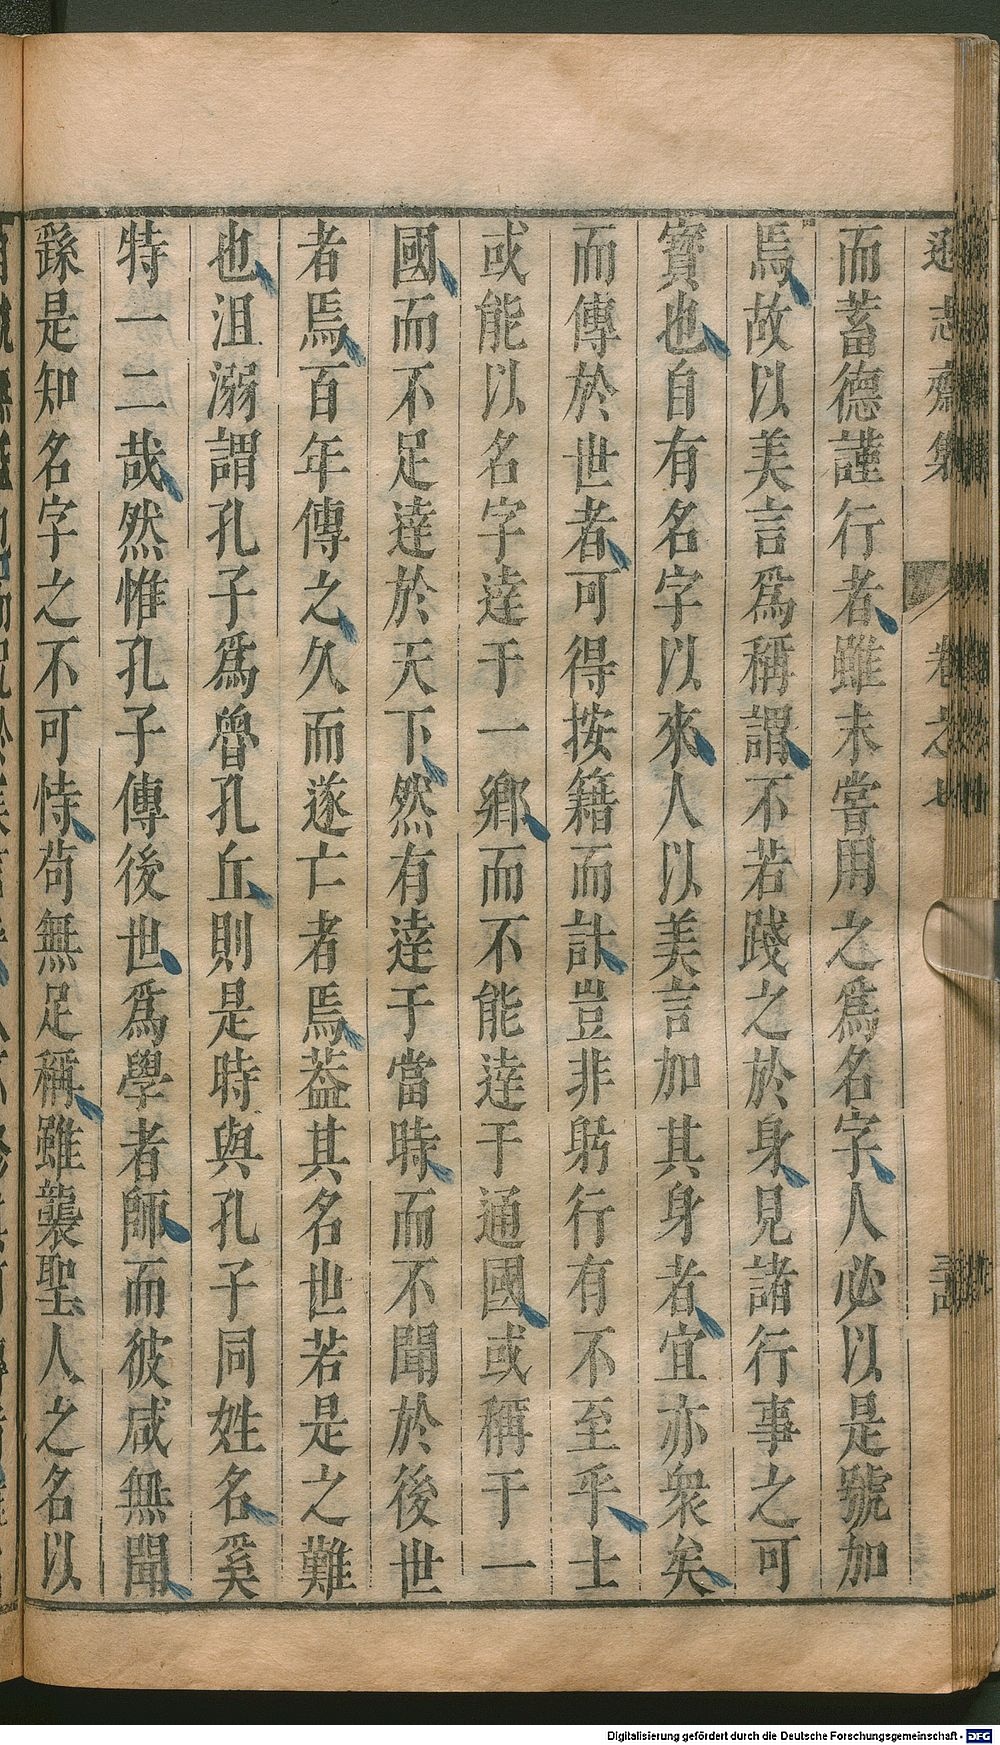 遜志齋集 卷之七 記
而蓄德謹行者雖未嘗用之爲名字人必以是號加
焉故以美言爲稱謂不若踐之於身見諸行事之可
寳也自有名字以來人以美言加其身者宜亦衆矣
而傳於世者可得按籍而計豈非躬行有不至乎士
或能以名字達于一鄉而不能達于通國或稱于一
國而不足達於天下然有達于當時而不聞於後世
者焉百年傳之久而遂亡者焉葢其名世若是之難
也沮溺謂孔子爲魯孔丘則是時與孔子同姓名奚
特一二哉然惟孔子傳後世爲學者師而彼咸無聞
繇是知名字之不可恃苟無足稱雖襲聖人之名以
Digitalisierung gefördert durch die Deutsche Forschungsgemeinschaft - DFG